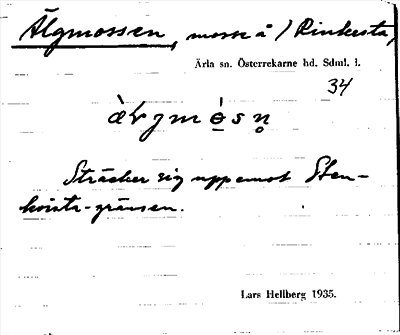 Älgmossen, mosse å / Rinkesta,
Ärla sn. Österrekarne hd. Sdml. l.
34
æ̀rgmọ̀sṇ
Sträcker sig uppemot Sten-
kvista-gränsen.
Lars Hellberg 1935.